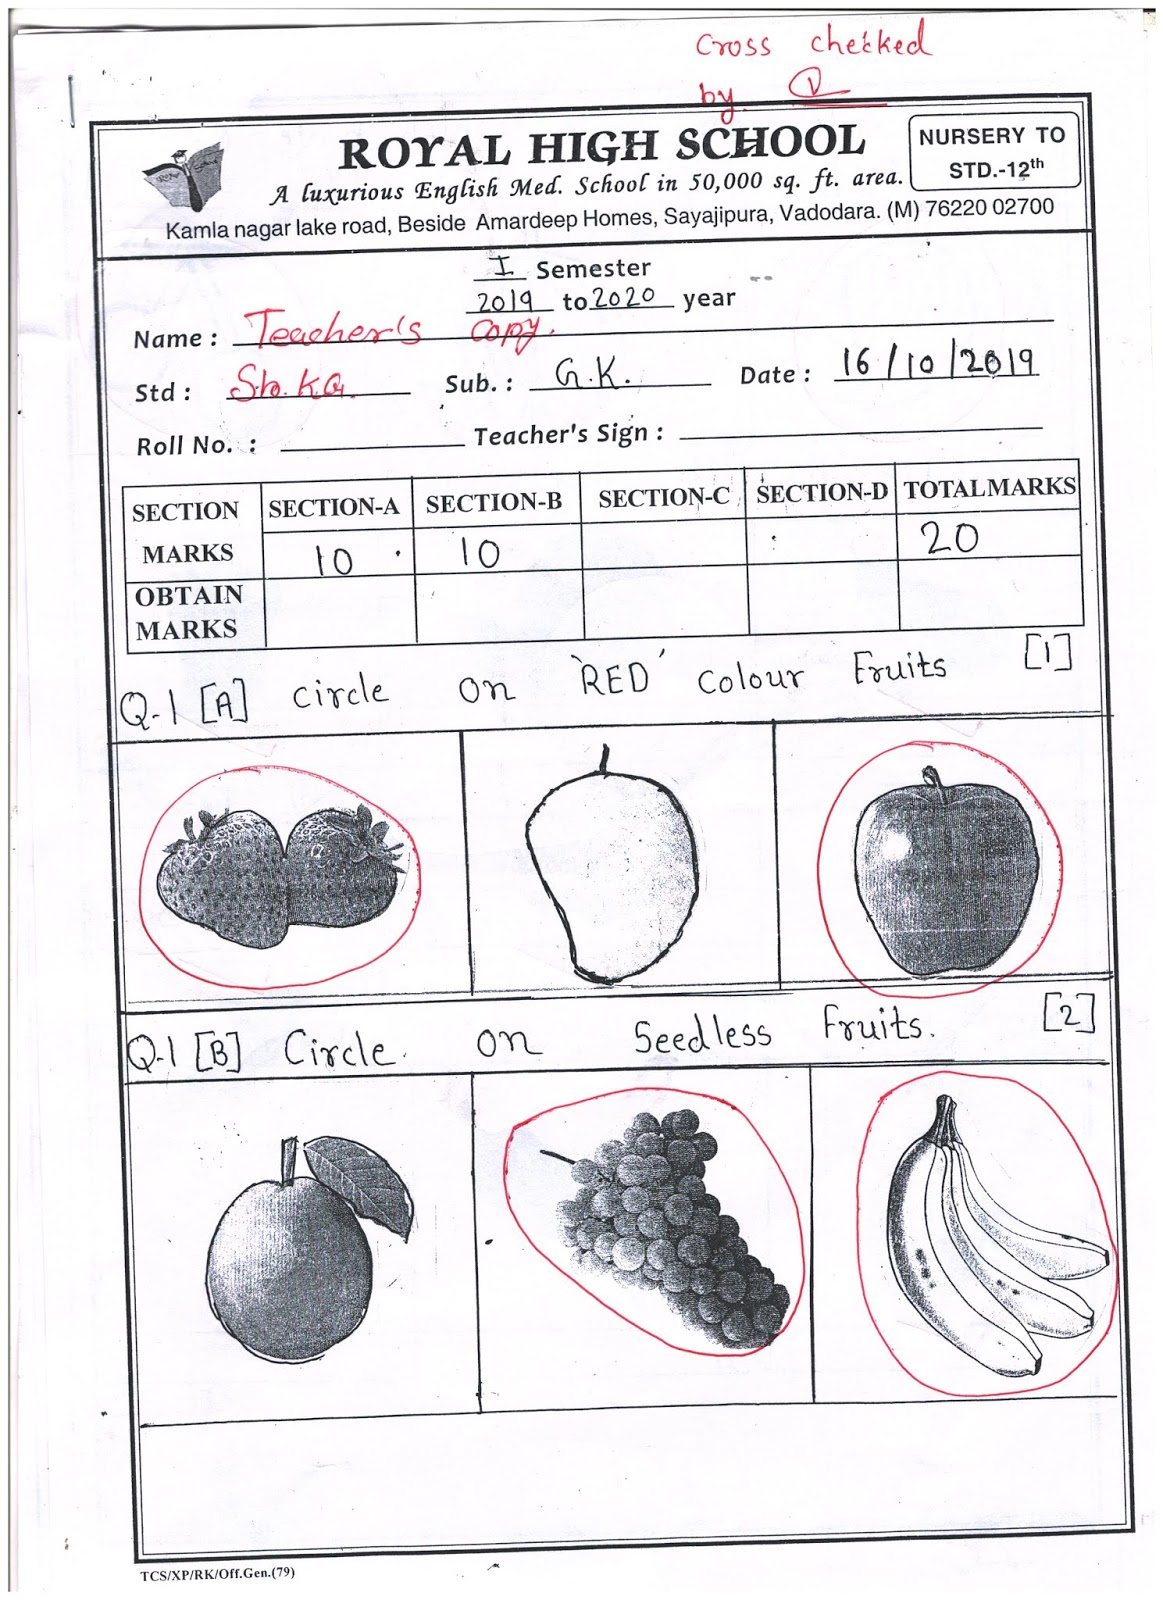 Cross checked
by
ROYAL HIGH SCHOOL
A luxurious English Med. School in 50,000 sq. ft. area.
NURSERY TO
STD.-12th
Kamla nagar lake road, Beside Amardeep Homes, Sayajipura, Vadodara. (M) 76220 02700
I Semester
2019 to 2020 year
Name : Teacher's copy.
Std : Sr. K.G. Sub. : G.K. Date : 16/10/2019
Roll No. : Teacher's Sign :
SECTION SECTION-A SECTION-B SECTION-C SECTION-D TOTAL MARKS
MARKS 10 10 20
OBTAIN
MARKS
Q-1 [A] circle on 'RED' colour Fruits [1]
Q-1 [B] Circle on Seedless Fruits. [2]
TCS/XP/RK/Off.Gen.(79)